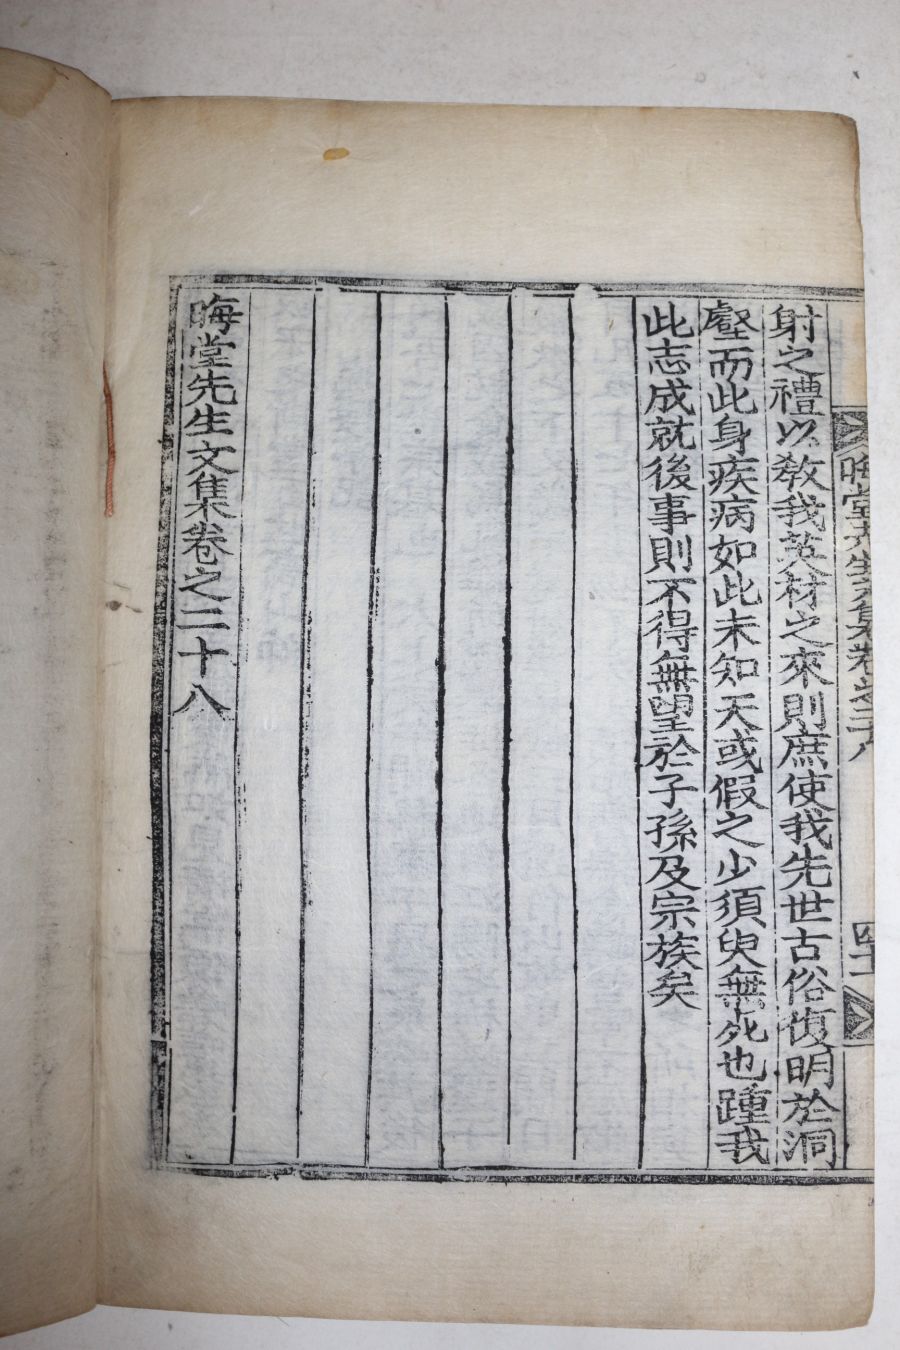 晦堂先生文集卷之二十八
四十一
射之禮以敎我英材之來則庶使我先世古俗復明於洞
壑而此身疾病如此未知天或假之少須臾無死也踵我
此志成就後事則不得無望於子孫及宗族矣
晦堂先生文集卷之二十八